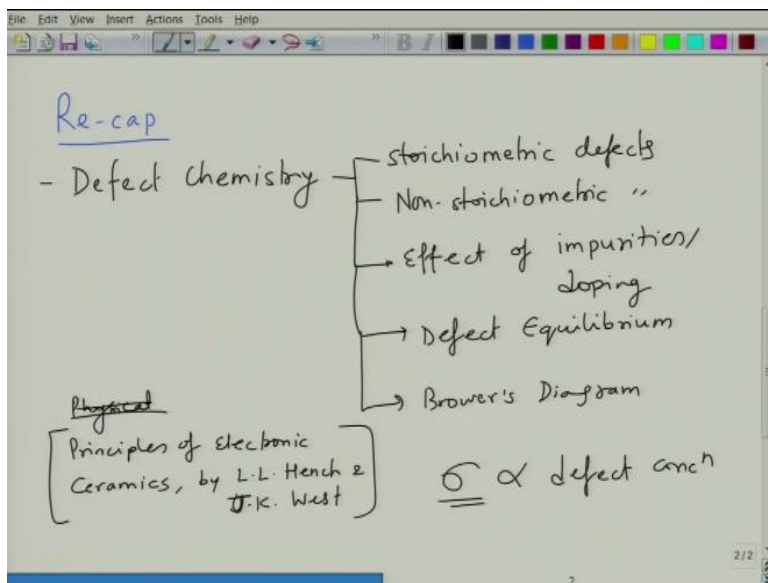 File Edit View Insert Actions Tools Help
B I
Re-cap
- Defect Chemistry
stoichiometric defects
Non-stoichiometric "
Effect of impurities/
doping
Defect Equilibrium
Brower's Diagram
Physical
Principles of Electronic
Ceramics, by L.L. Hench &
J.K. West
σ ∝ defect concⁿ
2/2